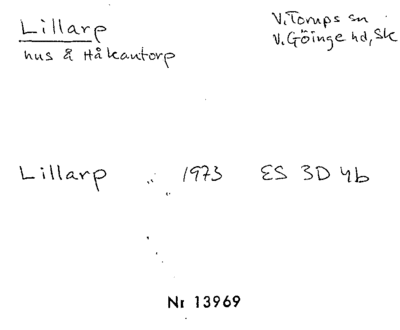 Lillarp
hus å Håkantorp
V. Torups sn
V. Göinge hd, Sk
Lillarp " 1973 ES 3D 4b
Nr 13969